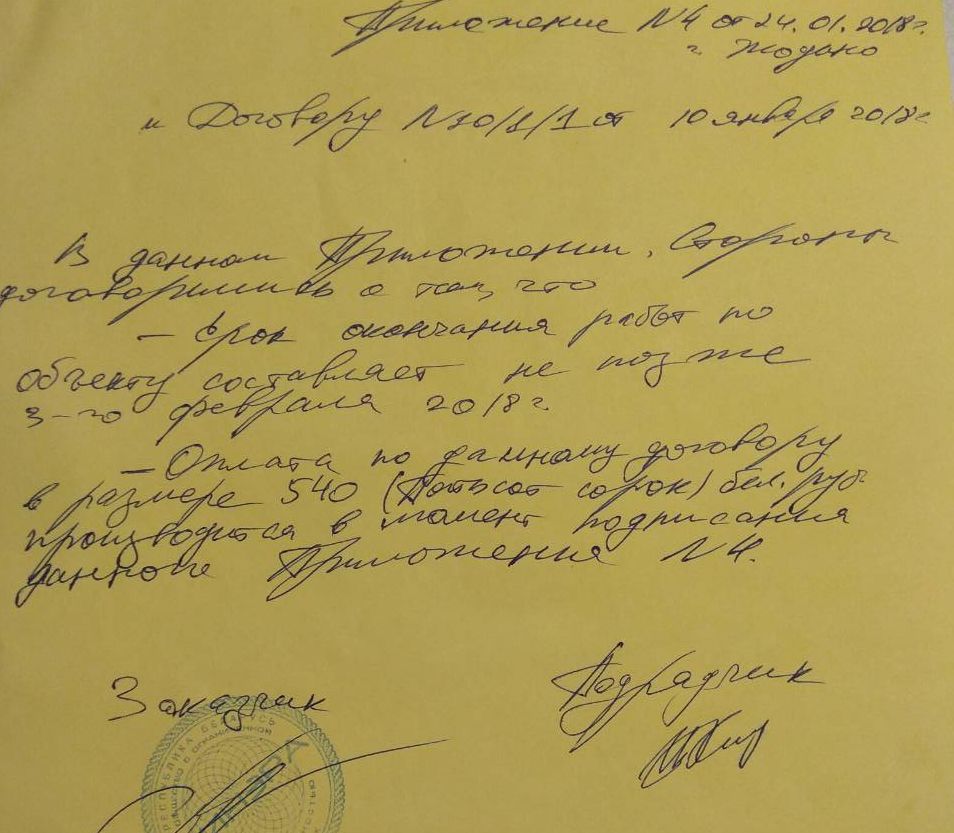 Приложение №4 от 24.01.2018г.
г. Жодино
к Договору №10/1/1 от 10 января 2018г
В данном Приложении, Стороны
договорились о том, что
- Срок окончания работ по
объекту составляет не позже
3-го февраля 2018г.
- Оплата по данному договору
в размере 540 (Пятьсот сорок) бел. руб.
производится в момент подписания
данного Приложения №4.
Заказчик
Подрядчик
РЕСПУБЛИКА БЕЛАРУСЬ